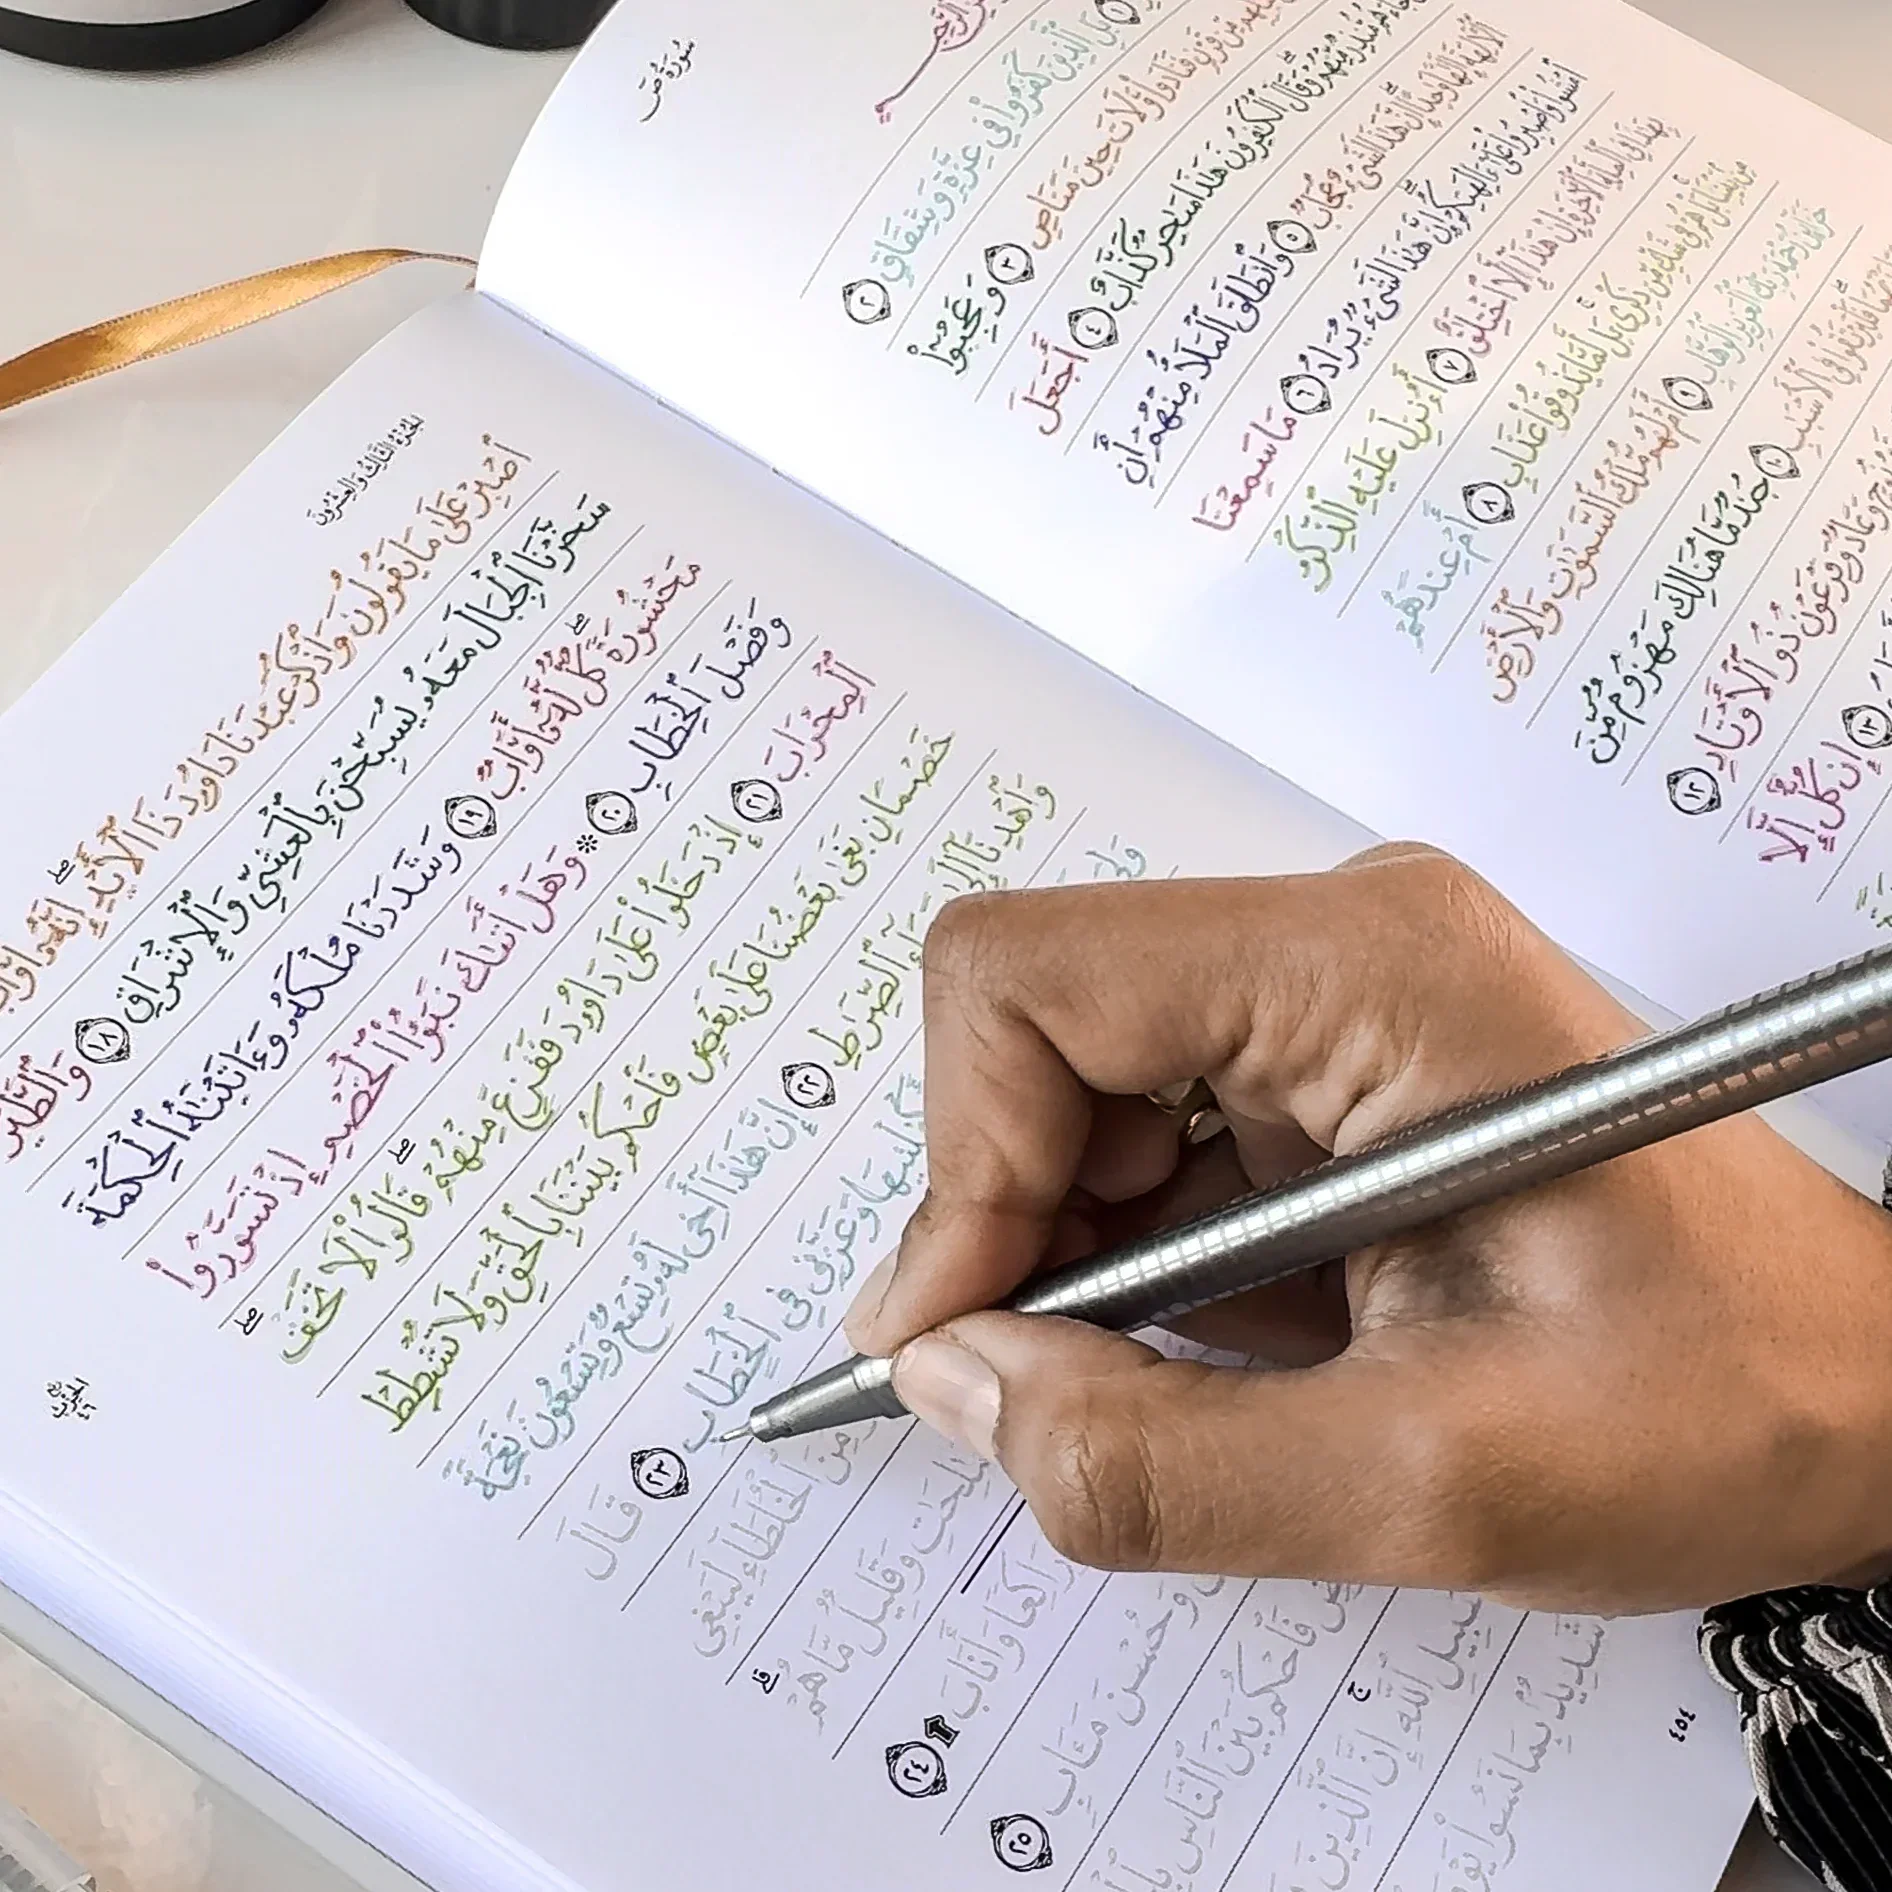 سُورَةُ صٓ
ٱلرَّحِيمِ
١ بَلِ ٱلَّذِينَ كَفَرُوا۟ فِى عِزَّةٍ وَشِقَاقٍ ٢
قَبْلِهِم مِّن قَرْنٍ فَنَادَوا۟ وَّلَاتَ حِينَ مَنَاصٍ ٣ وَعَجِبُوٓا۟
جَآءَهُم مُّنذِرٌ مِّنْهُمْ وَقَالَ ٱلْكَـٰفِرُونَ هَـٰذَا سَـٰحِرٌ كَذَّابٌ ٤ أَجَعَلَ
ٱلْـَٔالِهَةَ إِلَـٰهًا وَٰحِدًا إِنَّ هَـٰذَا لَشَىْءٌ عُجَابٌ ٥ وَٱنطَلَقَ ٱلْمَلَأُ مِنْهُمْ أَنِ
ٱمْشُوا۟ وَٱصْبِرُوا۟ عَلَىٰٓ ءَالِهَتِكُمْ إِنَّ هَـٰذَا لَشَىْءٌ يُرَادُ ٦ مَا سَمِعْنَا
بِهَـٰذَا فِى ٱلْمِلَّةِ ٱلْـَٔاخِرَةِ إِنْ هَـٰذَآ إِلَّا ٱخْتِلَـٰقٌ ٧ أَءُنزِلَ عَلَيْهِ ٱلذِّكْرُ
مِنۢ بَيْنِنَا بَلْ هُمْ فِى شَكٍّ مِّن ذِكْرِى بَل لَّمَّا يَذُوقُوا۟ عَذَابِ ٨ أَمْ عِندَهُمْ
خَزَآئِنُ رَحْمَةِ رَبِّكَ ٱلْعَزِيزِ ٱلْوَهَّابِ ٩ أَمْ لَهُم مُّلْكُ ٱلسَّمَـٰوَٰتِ وَٱلْأَرْضِ
فَلْيَرْتَقُوا۟ فِى ٱلْأَسْبَـٰبِ ١٠ جُندٌ مَّا هُنَالِكَ مَهْزُومٌ مِّنَ
نُوحٍ وَعَادٌ وَفِرْعَوْنُ ذُو ٱلْأَوْتَادِ ١٢
١٣ إِن كُلٌّ إِلَّا
ٱلْجُزْءُ ٱلثَّالِثُ وَٱلْعِشْرُونَ
ٱصْبِرْ عَلَىٰ مَا يَقُولُونَ وَٱذْكُرْ عَبْدَنَا دَاوُۥدَ ذَا ٱلْأَيْدِ ۖ إِنَّهُۥٓ أَوَّابٌ
سَخَّرْنَا ٱلْجِبَالَ مَعَهُۥ يُسَبِّحْنَ بِٱلْعَشِىِّ وَٱلْإِشْرَاقِ ١٨ وَٱلطَّيْرَ
مَحْشُورَةً ۖ كُلٌّ لَّهُۥٓ أَوَّابٌ ١٩ وَشَدَدْنَا مُلْكَهُۥ وَءَاتَيْنَـٰهُ ٱلْحِكْمَةَ
وَفَصْلَ ٱلْخِطَابِ ٢٠ ۞ وَهَلْ أَتَىٰكَ نَبَؤُا۟ ٱلْخَصْمِ إِذْ تَسَوَّرُوا۟
ٱلْمِحْرَابَ ٢١ إِذْ دَخَلُوا۟ عَلَىٰ دَاوُۥدَ فَفَزِعَ مِنْهُمْ ۖ قَالُوا۟ لَا تَخَفْ ۖ
خَصْمَانِ بَغَىٰ بَعْضُنَا عَلَىٰ بَعْضٍ فَٱحْكُم بَيْنَنَا بِٱلْحَقِّ وَلَا تُشْطِطْ
وَٱهْدِنَآ إِلَىٰ سَوَآءِ ٱلصِّرَٰطِ ٢٢ إِنَّ هَـٰذَآ أَخِى لَهُۥ تِسْعٌ وَتِسْعُونَ نَعْجَةً
وَلِىَ أَكْفِلْنِيهَا وَعَزَّنِى فِى ٱلْخِطَابِ ٢٣ قَالَ
مِّنَ ٱلْخُلَطَآءِ لَيَبْغِى
وَقَلِيلٌ مَّا هُمْ ۗ
رَاكِعًا وَأَنَابَ ٢٤
وَحُسْنَ مَـَٔابٍ ٢٥
فَٱحْكُم بَيْنَ ٱلنَّاسِ
سَبِيلِ ٱللَّهِ ۚ إِنَّ ٱلَّذِينَ
شَدِيدٌۢ بِمَا نَسُوا۟
ٱلْحِزْب ٤٦
٤٥٤